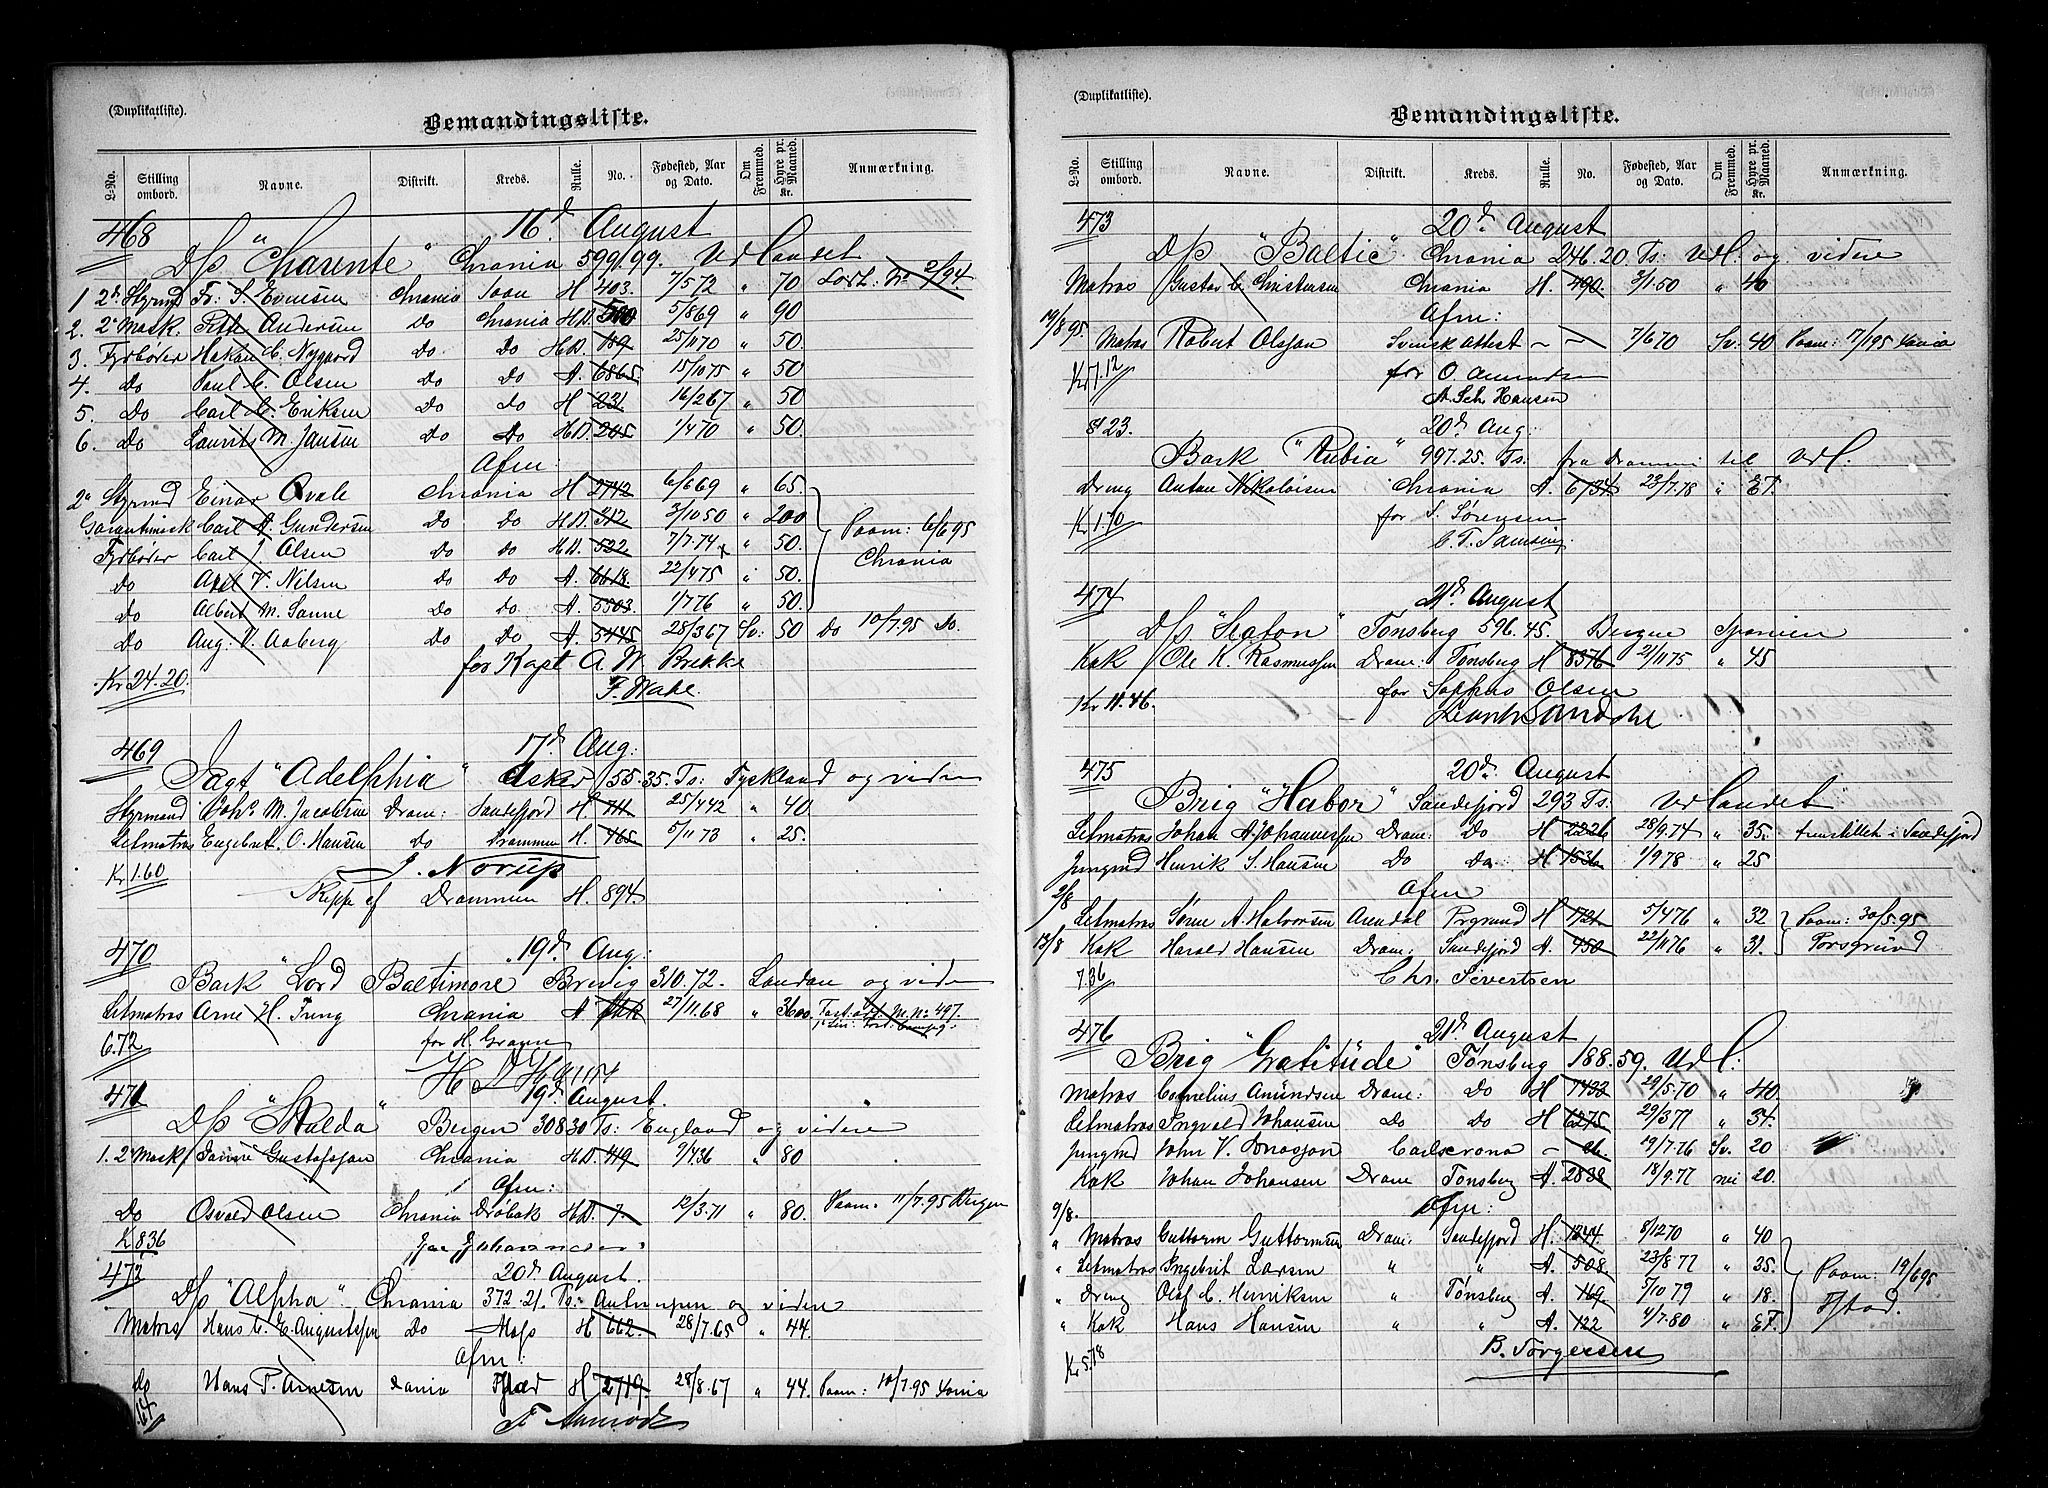 (Duplikatliste).
Bemandingsliste.
L-No. Stilling ombord. Navne. Distrikt. Kreds. Rulle. No. Fødested, Aar og Dato. Om Fremmed. Hyre pr. Maaned. Kr. Anmærkning.
468 16d August
D/s "Charente" Chrania 599.99. Udlandet
1 2d Styrmd Fr. S. Evensen Chrania Soon H 403. 7/5 72 " 70 2/94
2. 2' Mask. Andersen Do Chrania HD. 5/8 69 " 90
3. Fyrbøter Hakon C. Nygaard Do Do HD. 119 25/11 70 " 50.
4. Do Paul C. Olsen Do Do A. 6865 15/10 75 " 50
5. Do Carl C. Eriksen Do Do H 231 16/2 67 " 50
6. Do Laurits M. Jansen Do Do HD. 205 1/4 70 " 50.
Afm:
2' Styrmd Einar Qvale Chrania H 2742 6/6 69 " 65.
Carl A. Gundersen Do Do HD. 312 3/10 50 " 200 Paam: 6/6 95
Fyrbøter Carl J. Olsen Do Do HD. 522 7/7.74 " 50. Chrania
Do Axel V. Nilsen Do Do A. 6618 22/4 75 " 50.
Do Albert M. Sanne Do Do A. 5503 1/7 76 " 50.
Do Aug. V. Aaberg Do Do A. 5445 28/3 67 Sv: 50 Do 10/7.95 Do.
Kr 24.20. for Kapt A. W. Brekke
469 17d Aug:
Jagt "Adelphia" Asker 55.35. Ts: Tyskland og videre
Styrmand Joh's M. Jacobsen Dram: Sandefjord H. 711 25/4 42 " 40.
Letmatros Engebret O. Hansen Do Drammen H. 465 5/11 73 " 25.
Kr 1.60 J. Norup
Skipper af Drammen H. 894.
470 19d Aug:
Bark "Lord Baltimore Brevig 310.72. London og videre
Letmatros Arne H. Jung Chrania A 27/11.68 " 36 00.
6.72 for H. Graven
471 19d August.
D/s "Skulda" Bergen 308 30 Ts: England og videre
1. 2' Mask Gustafsson Chrania HD. 419 9/4 36 " 80
Afm:
Do Osvald Olsen Chrania Drøbak HD. 7. 12/3.71 " 80. Paam: 11/7.95 Bergen
K 8.36
472 20d August.
D/s "Alpha" Chrania 372.21. Ts: Antwerpen og videre
Matros Hans C. E. Augustsen Do Moss H 662. 28/7.65 " 44.
Afm:
Do Hans T. Arnesen H 2719. 28/8.67 " 44. Paam: 10/7.95
(Duplikatliste).
Bemandingsliste.
L-No. Stilling ombord. Navne. Distrikt. Kreds. Rulle. No. Fødested, Aar og Dato. Om Fremmed. Hyre pr. Maaned. Kr. Anmærkning.
473 20d August
D/s "Baltic" Chrania 246.20 Ts: Udl. og videre
Matros Gustav C. Christensen Chrania H. 490. 3/1.50 " 40
Afm:
19/8 95. Matros Robert Olsson Svensk attest – – 7/6 70 Sv. 40 Paam: 17/1 95
Kr 7.12 for O Amundsen
A. Sch. Hansen
823. 20d Aug:
Bark "Rubia" 997.25. Ts. fra Drammen til Udl.
Dreng Anton Nikolaisen Chrania A. 6734 23/7.78 " ET.
Kr 1.70 for S. Sørensen
474 21d August
D/s Tønsberg 596.45. Bergen Spanien
Kok Ole K. Rasmussen Dram: Tønsberg H 8376 21/11 75 " 45
Kr 11.46. for Sophus Olsen
475 20d August
Brig "Habor" Sandefjord 293 Ts: Udlandet
Letmatros Johan A. Johannessen Dram: Do H 2226 28/9.74 " 35. fremstillet i Sandefjord
Jungmd Henrik S. Hansen Do Do H 1536 1/9 78 " 25
Afm
2/8 Letmatros Sørne A. Halvorsen Arendal Prgrund H 1721 5/4 76 " 32 Paam: 30/5.95
13/8 Kok Harald Hansen Dram: Sandefjord A. 450 22/11 76 " 31. Porsgrund
7.36 Chr. Sivertsen
476 21d August
Brig "Gratitude" Tønsberg 188.59. Udl:
Matros Cornelius Amundsen Dram: Do H 1433 29/5.70 " 40.
Letmatros Ingvald Johansen Do Do H 6275 29/3 77 " 34.
Jungmd John V. Jonasson Carlscrona – 26. 19/7.76 Sv. 20
Kok Johan Johansen Dram Tønsberg A. 2838 18/9.77 nei 20.
9/8. Afm:
" Matros Guttorm Guttormsen Dram: Sandefjord H. 1344 8/12 70 " 40
" Letmatros Ingebret Larsen " " A. 508. 23/8.77 " 35. Paam: 19/6 95
" Dreng Olaf C. Henriksen " Tønsberg A. 169. 5/10 79 " 18.
" Kok Hans Hansen " " A. 122 4/7.80 " ET.
Kr 5.78 B. Torgersen